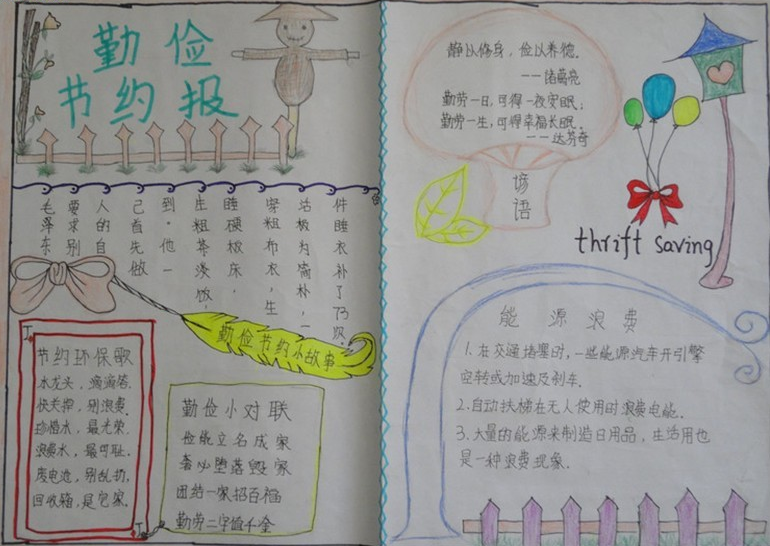 勤俭
节约报
毛泽东
要求别
人的自
己首先做
到。他一
生粗茶淡饭，
睡硬板床，
穿粗布衣，生
活极为简朴，一
件睡衣补了73次.
勤俭节约小故事
节约环保歌
水龙头，滴滴答.
快关掉，别浪费.
珍惜水，最光荣.
浪费水，最可耻.
废电池，别乱扔，
回收箱，是它家.
勤俭小对联
俭能立名成家
奢必堕落毁家
团结一家招百福
勤劳二字值千金
静以修身，俭以养德.
——诸葛亮
勤劳一日，可得一夜安眠；
勤劳一生，可得幸福长眠.
——达芬奇
谚语
thrift saving
能源浪费
1. 在交通堵塞时，一些能源汽车开引擎
空转或加速及刹车.
2. 自动扶梯在无人使用时浪费电能.
3. 大量的能源来制造日用品，生活用也
是一种浪费现象.